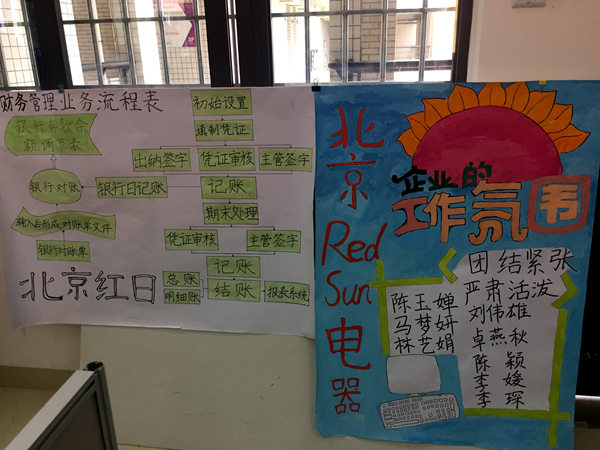 财务管理业务流程表
初始设置
银行存款余
额调节表
填制凭证
出纳签字
凭证审核
主管签字
银行对账
银行日记账
记账
期末处理
输入后形成对账单文件
凭证审核
主管签字
银行对账单
记账
总账
明细账
结账
报表系统
北京红日
北京
Red
Sun
电器
企业的
工作氛围
团结紧张
严肃活泼
陈玉婵
马梦妍
林艺娟
刘伟雄
卓燕秋
陈颖
李媛
李琛